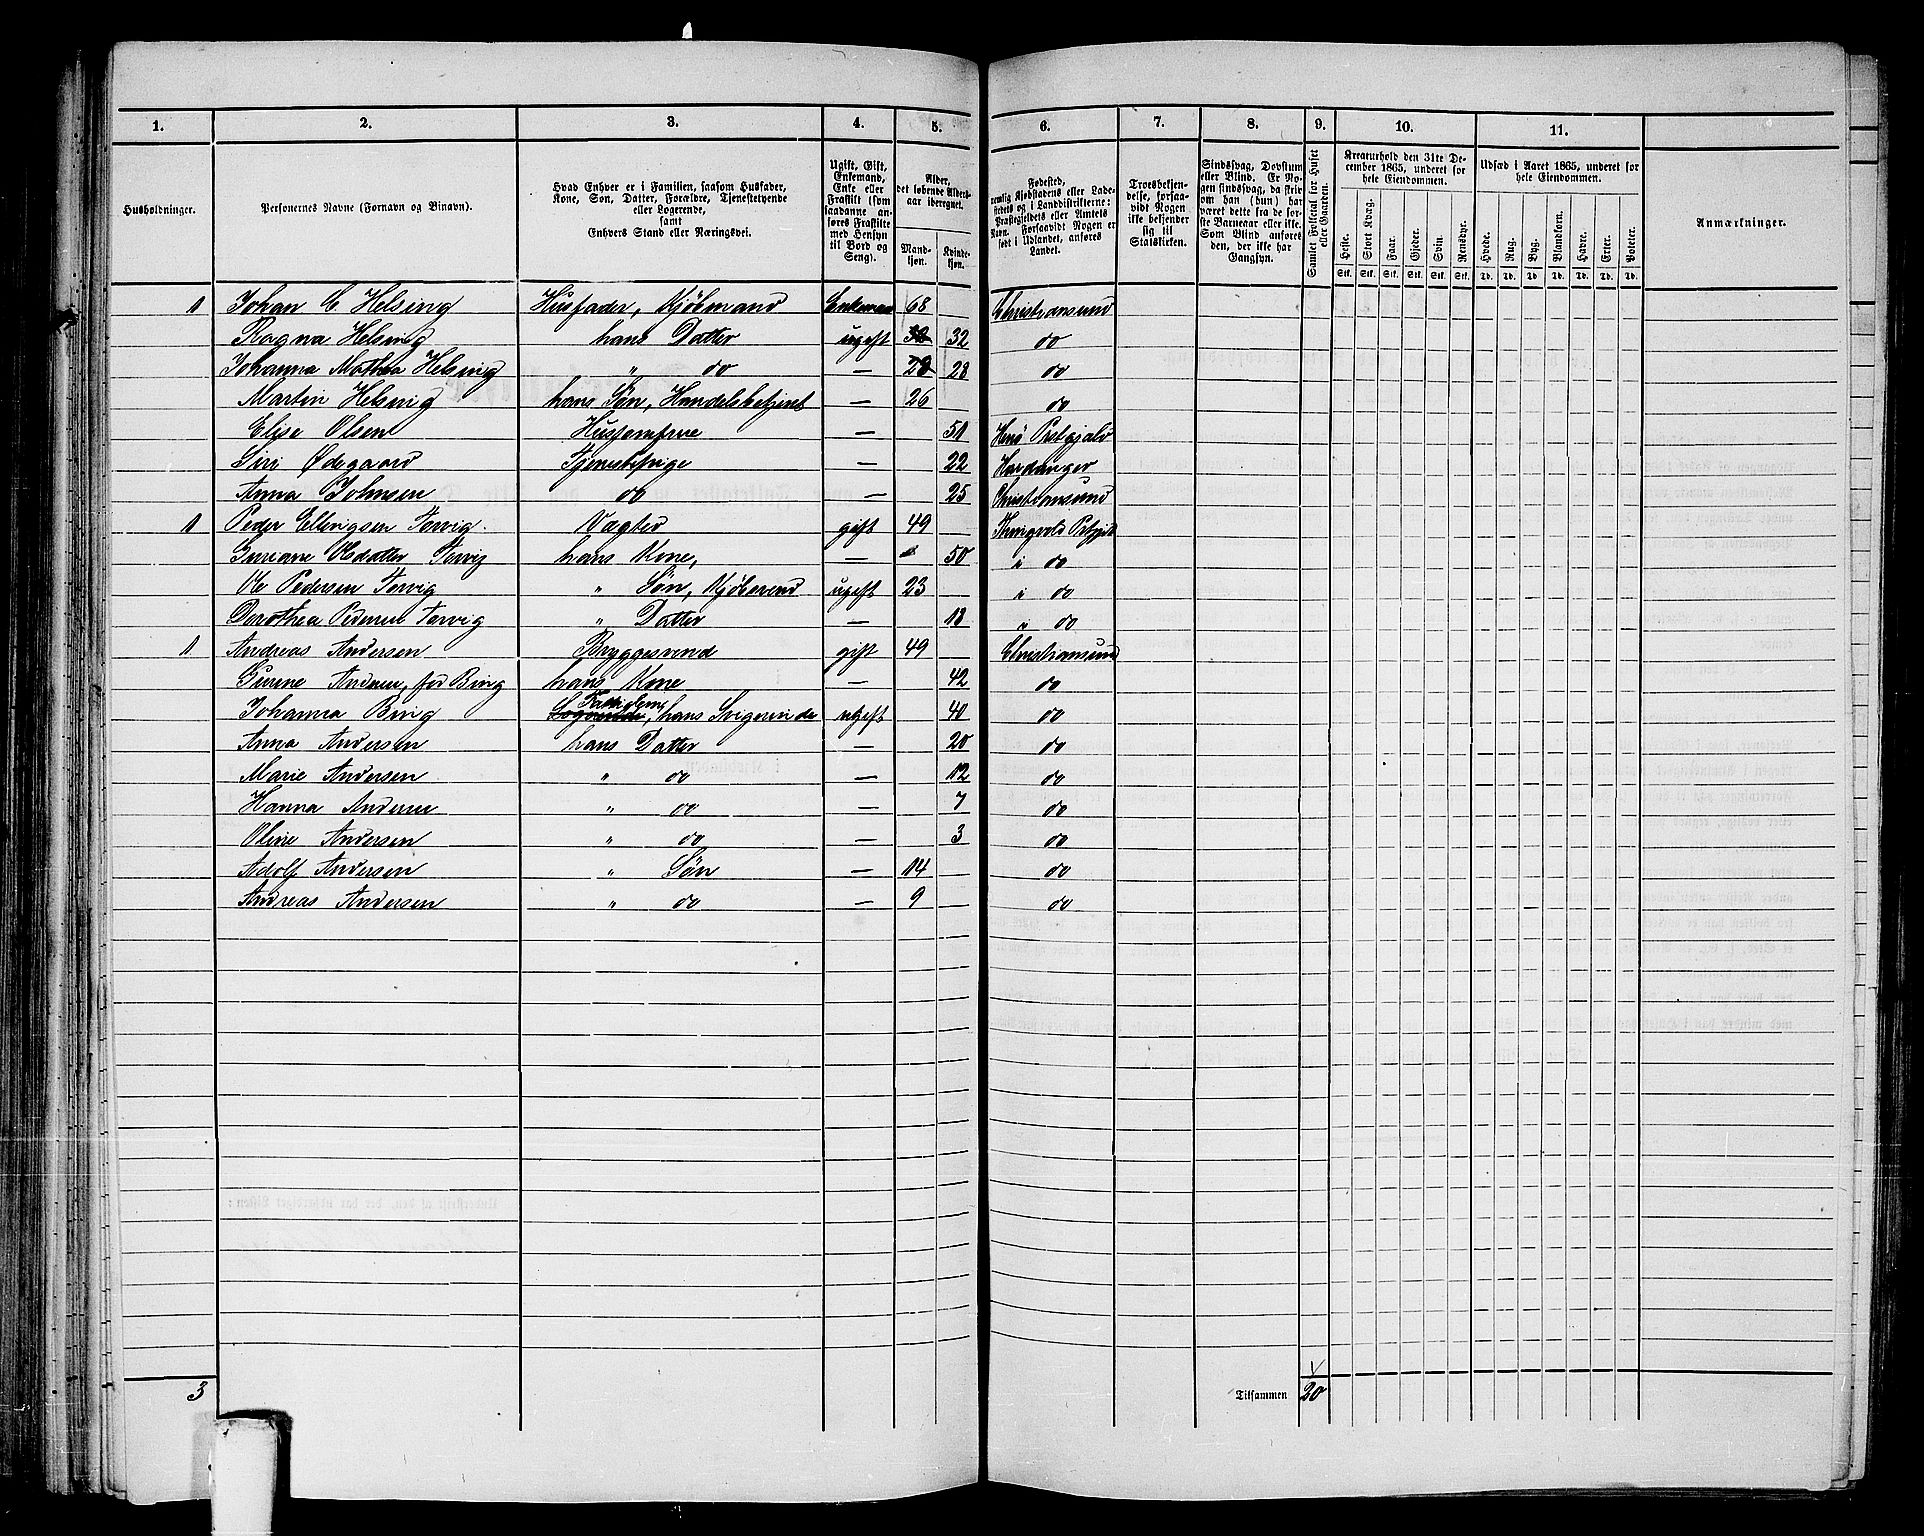 1. 2. 3. 4. 5. 6. 7. 8. 9. 10. 11.
Husholdninger.
Personernes Navne (Fornavn og Binavn).
Hvad Enhver er i Familien, saasom Husfader,
Kone, Søn, Datter, Forældre, Tjenestetyende
eller Logerende,
samt
Enhvers Stand eller Næringsvei.
Ugift, Gift,
Enkemand,
Enke eller
Fraskilt (som
saadanne an-
føres Fraskilte
med Hensyn
til Bord og
Seng).
Alder,
det løbende Alders-
aar iberegnet.
Mand-
kjøn.
Kvinde-
kjøn.
Fødested,
nemlig Kjøbstadens eller Lade-
stedets og i Landdistrikterne:
Præstegjeldets eller Amtets
Navn. Forsaavidt Nogen er
født i Udlandet, anføres
Landet.
Troesbekjen-
delse, forsaa-
vidt Nogen
ikke bekjender
sig til
Statskirken.
Sindssvag, Døvstum
eller Blind. Er No-
gen sindssvag, da skriv
om han (hun) har
været dette fra de før-
ste Barneaar eller ikke.
Som Blind anføres
den, der ikke har
Gangsyn.
Samlet Folketal for Huset
eller Gaarden.
Kreaturhold den 31te De-
cember 1865, underet for
hele Eiendommen.
Heste. Stort Kvæg. Faar. Gjeder. Svin. Rensdyr.
Stk. Stk. Stk. Stk. Stk. Stk.
Udsæd i Aaret 1865, underet for
hele Eiendommen.
Hvede. Rug. Byg. Blandkorn. Havre. Erter. Poteter.
Td. Td. Td. Td. Td. Td. Td.
Anmærkninger.
1 Johan C Helsing Husfader, Kjøbmand Enkemand 68 Christiansund
Ragna Helsing hans Datter ugift 32 do
Johanna Mathea Helsing " do — 28 do
Martin Helsing hans Søn, Handelsbetjent — 26 do
Elise Olsen Husjomfrue — 51 Herø Prstgjeld
Giri Ødegaard Tjenestepige — 22 Hardanger
Anna Johnsen do — 25 Christiansund
1 Peder Ellingsen Torvig Vægter gift 49 Thingvold Prstgjld
Guriane Oldatter Torvig hans Kone, — 50 i do
Ole Pedersen Torvig " Søn, ugift 23 i do
Dorothea Pedersen Torvig " Datter — 18 " do
1 Andreas Andersen Bryggesvend gift 49 Christiansund
Gurine Andersen, fød Bing hans Kone — 42 do
Johanna Bing Logerende, hans Svigerinde ugift 40 do
Anna Andersen hans Datter — 20 do
Marie Andersen " do — 12 do
Hanna Andersen " do — 7 do
Oline Andersen " do — 3 do
Adolf Andersen " Søn — 14 do
Andreas Andersen " do — 9 do
3 Tilsammen 20